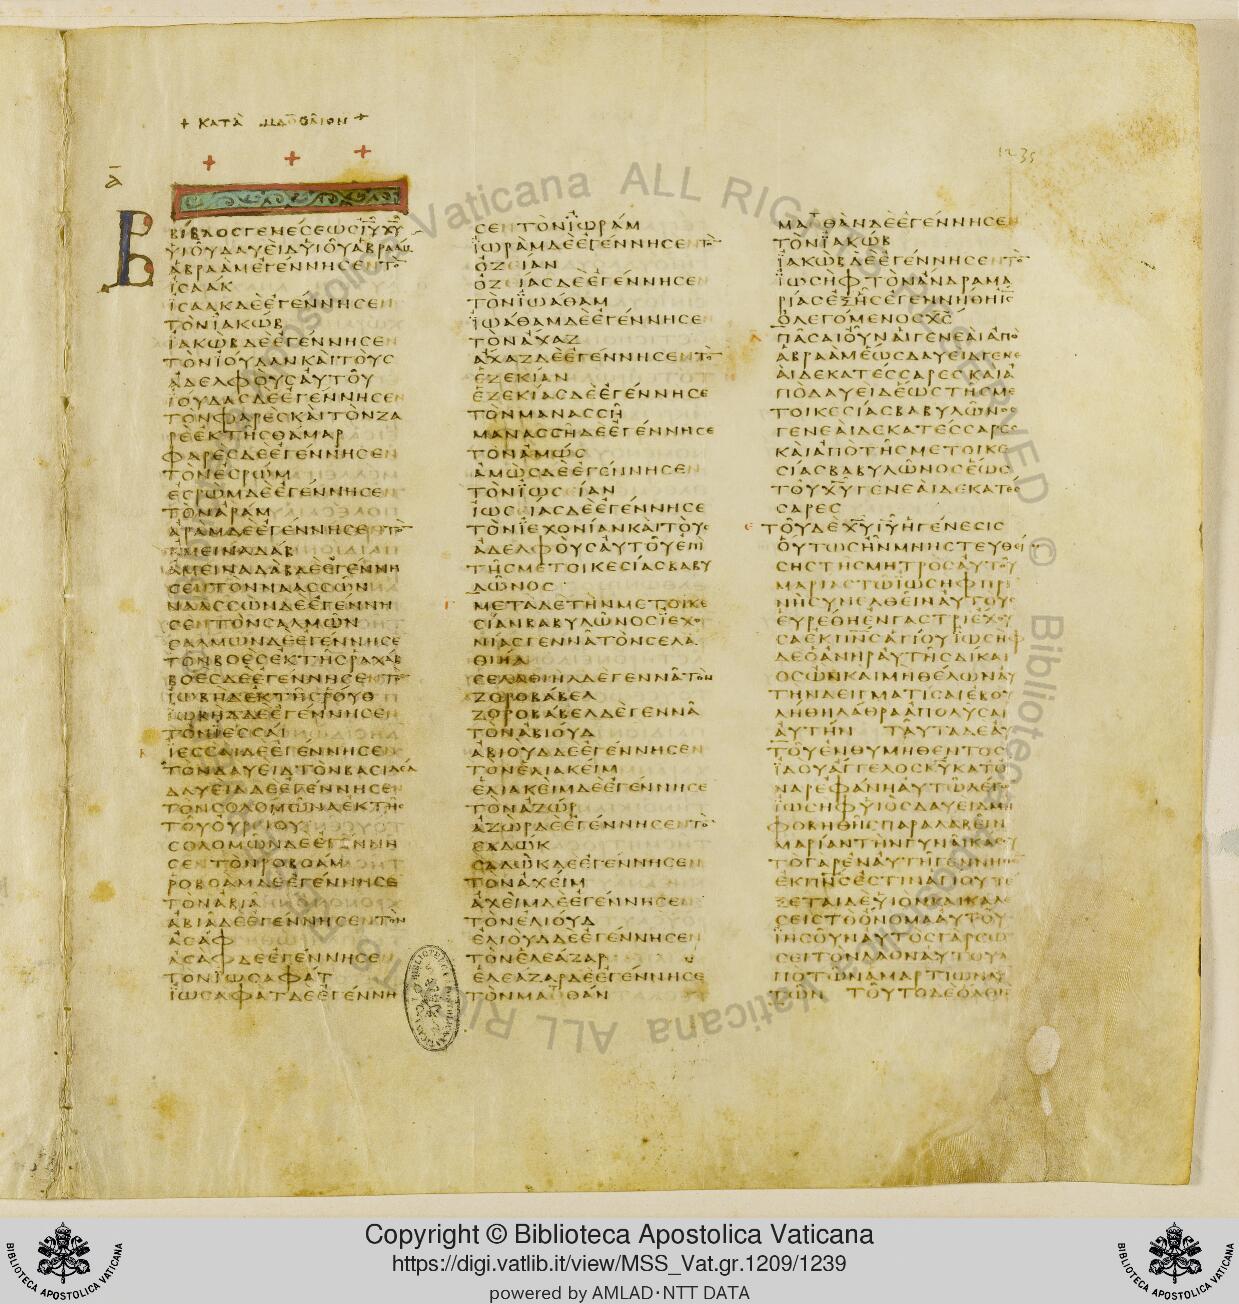 + ΚΑΤᾺ ΜΑΘΘΑῖΟΝ +
1235
Α
ΒΙΒΛΟΣΓΕΝΕΣΕΩΣΙΥΧΥ
ΥΙΟΥΔΑΥΕΙΔΥΙΟΥΑΒΡΑΑΜ
ΑΒΡΑΑΜΕΓΕΝΝΗΣΕΝΤΟ
ΙΣΑΑΚ
ΙΣΑΑΚΔΕΕΓΕΝΝΗΣΕΝ
ΤΟΝΙΑΚΩΒ
ΙΑΚΩΒΔΕΕΓΕΝΝΗΣΕΝ
ΤΟΝΙΟΥΔΑΝΚΑΙΤΟΥΣ
ΑΔΕΛΦΟΥΣΑΥΤΟΥ
ΙΟΥΔΑΣΔΕΕΓΕΝΝΗΣΕΝ
ΤΟΝΦΑΡΕΣΚΑΙΤΟΝΖΑ
ΡΕΕΚΤΗΣΘΑΜΑΡ
ΦΑΡΕΣΔΕΕΓΕΝΝΗΣΕΝ
ΤΟΝΕΣΡΩΜ
ΕΣΡΩΜΔΕΕΓΕΝΝΗΣΕΝ
ΤΟΝΑΡΑΜ
ΑΡΑΜΔΕΕΓΕΝΝΗΣΕΝΤΟ
ΑΜΕΙΝΑΔΑΒ
ΑΜΕΙΝΑΔΑΒΔΕΕΓΕΝΝΗ
ΣΕΝΤΟΝΝΑΑΣΣΩΝ
ΝΑΑΣΣΩΝΔΕΕΓΕΝΝΗ
ΣΕΝΤΟΝΣΑΛΜΩΝ
ΣΑΛΜΩΝΔΕΕΓΕΝΝΗΣΕ
ΤΟΝΒΟΕΣΕΚΤΗΣΡΑΧΑΒ
ΒΟΕΣΔΕΕΓΕΝΝΗΣΕΝΤΟ
ΙΩΒΗΔΕΚΤΗΣΡΟΥΘ
ΙΩΒΗΔΔΕΕΓΕΝΝΗΣΕΝ
ΤΟΝΙΕΣΣΑΙ
ΙΕΣΣΑΙΔΕΕΓΕΝΝΗΣΕΝ
ΤΟΝΔΑΥΕΙΔΤΟΝΒΑΣΙΛΕΑ
ΔΑΥΕΙΔΔΕΕΓΕΝΝΗΣΕΝ
ΤΟΝΣΟΛΟΜΩΝΑΕΚΤΗΣ
ΤΟΥΟΥΡΙΟΥ
ΣΟΛΟΜΩΝΔΕΕΓΕΝΝΗ
ΣΕΝΤΟΝΡΟΒΟΑΜ
ΡΟΒΟΑΜΔΕΕΓΕΝΝΗΣΕ
ΤΟΝΑΒΙΑ
ΑΒΙΑΔΕΕΓΕΝΝΗΣΕΝΤΟΝ
ΑΣΑΦ
ΑΣΑΦΔΕΕΓΕΝΝΗΣΕΝ
ΤΟΝΙΩΣΑΦΑΤ
ΙΩΣΑΦΑΤΔΕΕΓΕΝΝΗ
ΣΕΝΤΟΝΙΩΡΑΜ
ΙΩΡΑΜΔΕΕΓΕΝΝΗΣΕΝΤΟ
ΟΖΕΙΑΝ
ΟΖΕΙΑΣΔΕΕΓΕΝΝΗΣΕΝ
ΤΟΝΙΩΑΘΑΜ
ΙΩΑΘΑΜΔΕΕΓΕΝΝΗΣΕ
ΤΟΝΑΧΑΖ
ΑΧΑΖΔΕΕΓΕΝΝΗΣΕΝΤΟ
ΕΖΕΚΙΑΝ
ΕΖΕΚΙΑΣΔΕΕΓΕΝΝΗΣΕ
ΤΟΝΜΑΝΑΣΣΗ
ΜΑΝΑΣΣΗΔΕΕΓΕΝΝΗΣΕ
ΤΟΝΑΜΩΣ
ΑΜΩΣΔΕΕΓΕΝΝΗΣΕΝ
ΤΟΝΙΩΣΕΙΑΝ
ΙΩΣΕΙΑΣΔΕΕΓΕΝΝΗΣΕ
ΤΟΝΙΕΧΟΝΙΑΝΚΑΙΤΟΥΣ
ΑΔΕΛΦΟΥΣΑΥΤΟΥΕΠΙ
ΤΗΣΜΕΤΟΙΚΕΣΙΑΣΒΑΒΥ
ΛΩΝΟΣ
ΜΕΤΑΔΕΤΗΝΜΕΤΟΙΚΕ
ΣΙΑΝΒΑΒΥΛΩΝΟΣΙΕΧΟ
ΝΙΑΣΓΕΝΝΑΤΟΝΣΕΛΑ
ΘΙΗΛ
ΣΕΛΑΘΙΗΛΔΕΓΕΝΝΑΤΟΝ
ΖΟΡΟΒΑΒΕΛ
ΖΟΡΟΒΑΒΕΛΔΕΓΕΝΝΑ
ΤΟΝΑΒΙΟΥΔ
ΑΒΙΟΥΔΔΕΕΓΕΝΝΗΣΕΝ
ΤΟΝΕΛΙΑΚΕΙΜ
ΕΛΙΑΚΕΙΜΔΕΕΓΕΝΝΗΣΕ
ΤΟΝΑΖΩΡ
ΑΖΩΡΔΕΕΓΕΝΝΗΣΕΝΤΟ
ΣΑΔΩΚ
ΣΑΔΩΚΔΕΕΓΕΝΝΗΣΕΝ
ΤΟΝΑΧΕΙΜ
ΑΧΕΙΜΔΕΕΓΕΝΝΗΣΕΝ
ΤΟΝΕΛΙΟΥΔ
ΕΛΙΟΥΔΔΕΕΓΕΝΝΗΣΕΝ
ΤΟΝΕΛΕΑΖΑΡ
ΕΛΕΑΖΑΡΔΕΕΓΕΝΝΗΣΕ
ΤΟΝΜΑΤΘΑΝ
ΜΑΤΘΑΝΔΕΕΓΕΝΝΗΣΕΝ
ΤΟΝΙΑΚΩΒ
ΙΑΚΩΒΔΕΕΓΕΝΝΗΣΕΝΤΟ
ΙΩΣΗΦΤΟΝΑΝΔΡΑΜΑ
ΡΙΑΣΕΞΗΣΕΓΕΝΝΗΘΗΙΣ
ΟΛΕΓΟΜΕΝΟΣΧΣ
ΠΑΣΑΙΟΥΝΑΙΓΕΝΕΑΙΑΠΟ
ΑΒΡΑΑΜΕΩΣΔΑΥΕΙΔΓΕΝΕ
ΑΙΔΕΚΑΤΕΣΣΑΡΕΣΚΑΙΑ
ΠΟΔΑΥΕΙΔΕΩΣΤΗΣΜΕ
ΤΟΙΚΕΣΙΑΣΒΑΒΥΛΩΝΟΣ
ΓΕΝΕΑΙΔΕΚΑΤΕΣΣΑΡΕΣ
ΚΑΙΑΠΟΤΗΣΜΕΤΟΙΚΕ
ΣΙΑΣΒΑΒΥΛΩΝΟΣΕΩΣ
ΤΟΥΧΥΓΕΝΕΑΙΔΕΚΑΤΕΣ
ΣΑΡΕΣ
ΤΟΥΔΕΧΥΙΥΗΓΕΝΕΣΙΣ
ΟΥΤΩΣΗΝΜΝΗΣΤΕΥΘΕΙ
ΣΗΣΤΗΣΜΗΤΡΟΣΑΥΤΟΥ
ΜΑΡΙΑΣΤΩΙΩΣΗΦΠΡΙ
ΝΗΣΥΝΕΛΘΕΙΝΑΥΤΟΥΣ
ΕΥΡΕΘΗΕΝΓΑΣΤΡΙΕΧΟΥ
ΣΑΕΚΠΝΣΑΓΙΟΥΙΩΣΗΦ
ΔΕΟΑΝΗΡΑΥΤΗΣΔΙΚΑΙ
ΟΣΩΝΚΑΙΜΗΘΕΛΩΝΑΥ
ΤΗΝΔΕΙΓΜΑΤΙΣΑΙΕΒΟΥ
ΛΗΘΗΛΑΘΡΑΑΠΟΛΥΣΑΙ
ΑΥΤΗΝ ΤΑΥΤΑΔΕΑΥ
ΤΟΥΕΝΘΥΜΗΘΕΝΤΟΣ
ΙΔΟΥΑΓΓΕΛΟΣΚΥΚΑΤΟ
ΝΑΡΕΦΑΝΗΑΥΤΩΛΕΓΩ
ΙΩΣΗΦΥΙΟΣΔΑΥΕΙΔΜΗ
ΦΟΒΗΘΗΣΠΑΡΑΛΑΒΕΙΝ
ΜΑΡΙΑΝΤΗΝΓΥΝΑΙΚΑΣΟΥ
ΤΟΓΑΡΕΝΑΥΤΗΓΕΝΝΗΘΕ
ΕΚΠΝΣΕΣΤΙΝΑΓΙΟΥΤΕ
ΞΕΤΑΙΔΕΥΙΟΝΚΑΙΚΑΛΕ
ΣΕΙΣΤΟΟΝΟΜΑΑΥΤΟΥ
ΙΗΣΟΥΝΑΥΤΟΣΓΑΡΣΩ
ΣΕΙΤΟΝΛΑΟΝΑΥΤΟΥΑ
ΠΟΤΩΝΑΜΑΡΤΙΩΝΑΥ
ΤΩΝ ΤΟΥΤΟΔΕΟΛΟΝ
Copyright © Biblioteca Apostolica Vaticana
https://digi.vatlib.it/view/MSS_Vat.gr.1209/1239
powered by AMLAD·NTT DATA
BIBLIOTECA APOSTOLICA VATICANA
BIBLIOTECA APOSTOLICA VATICANA